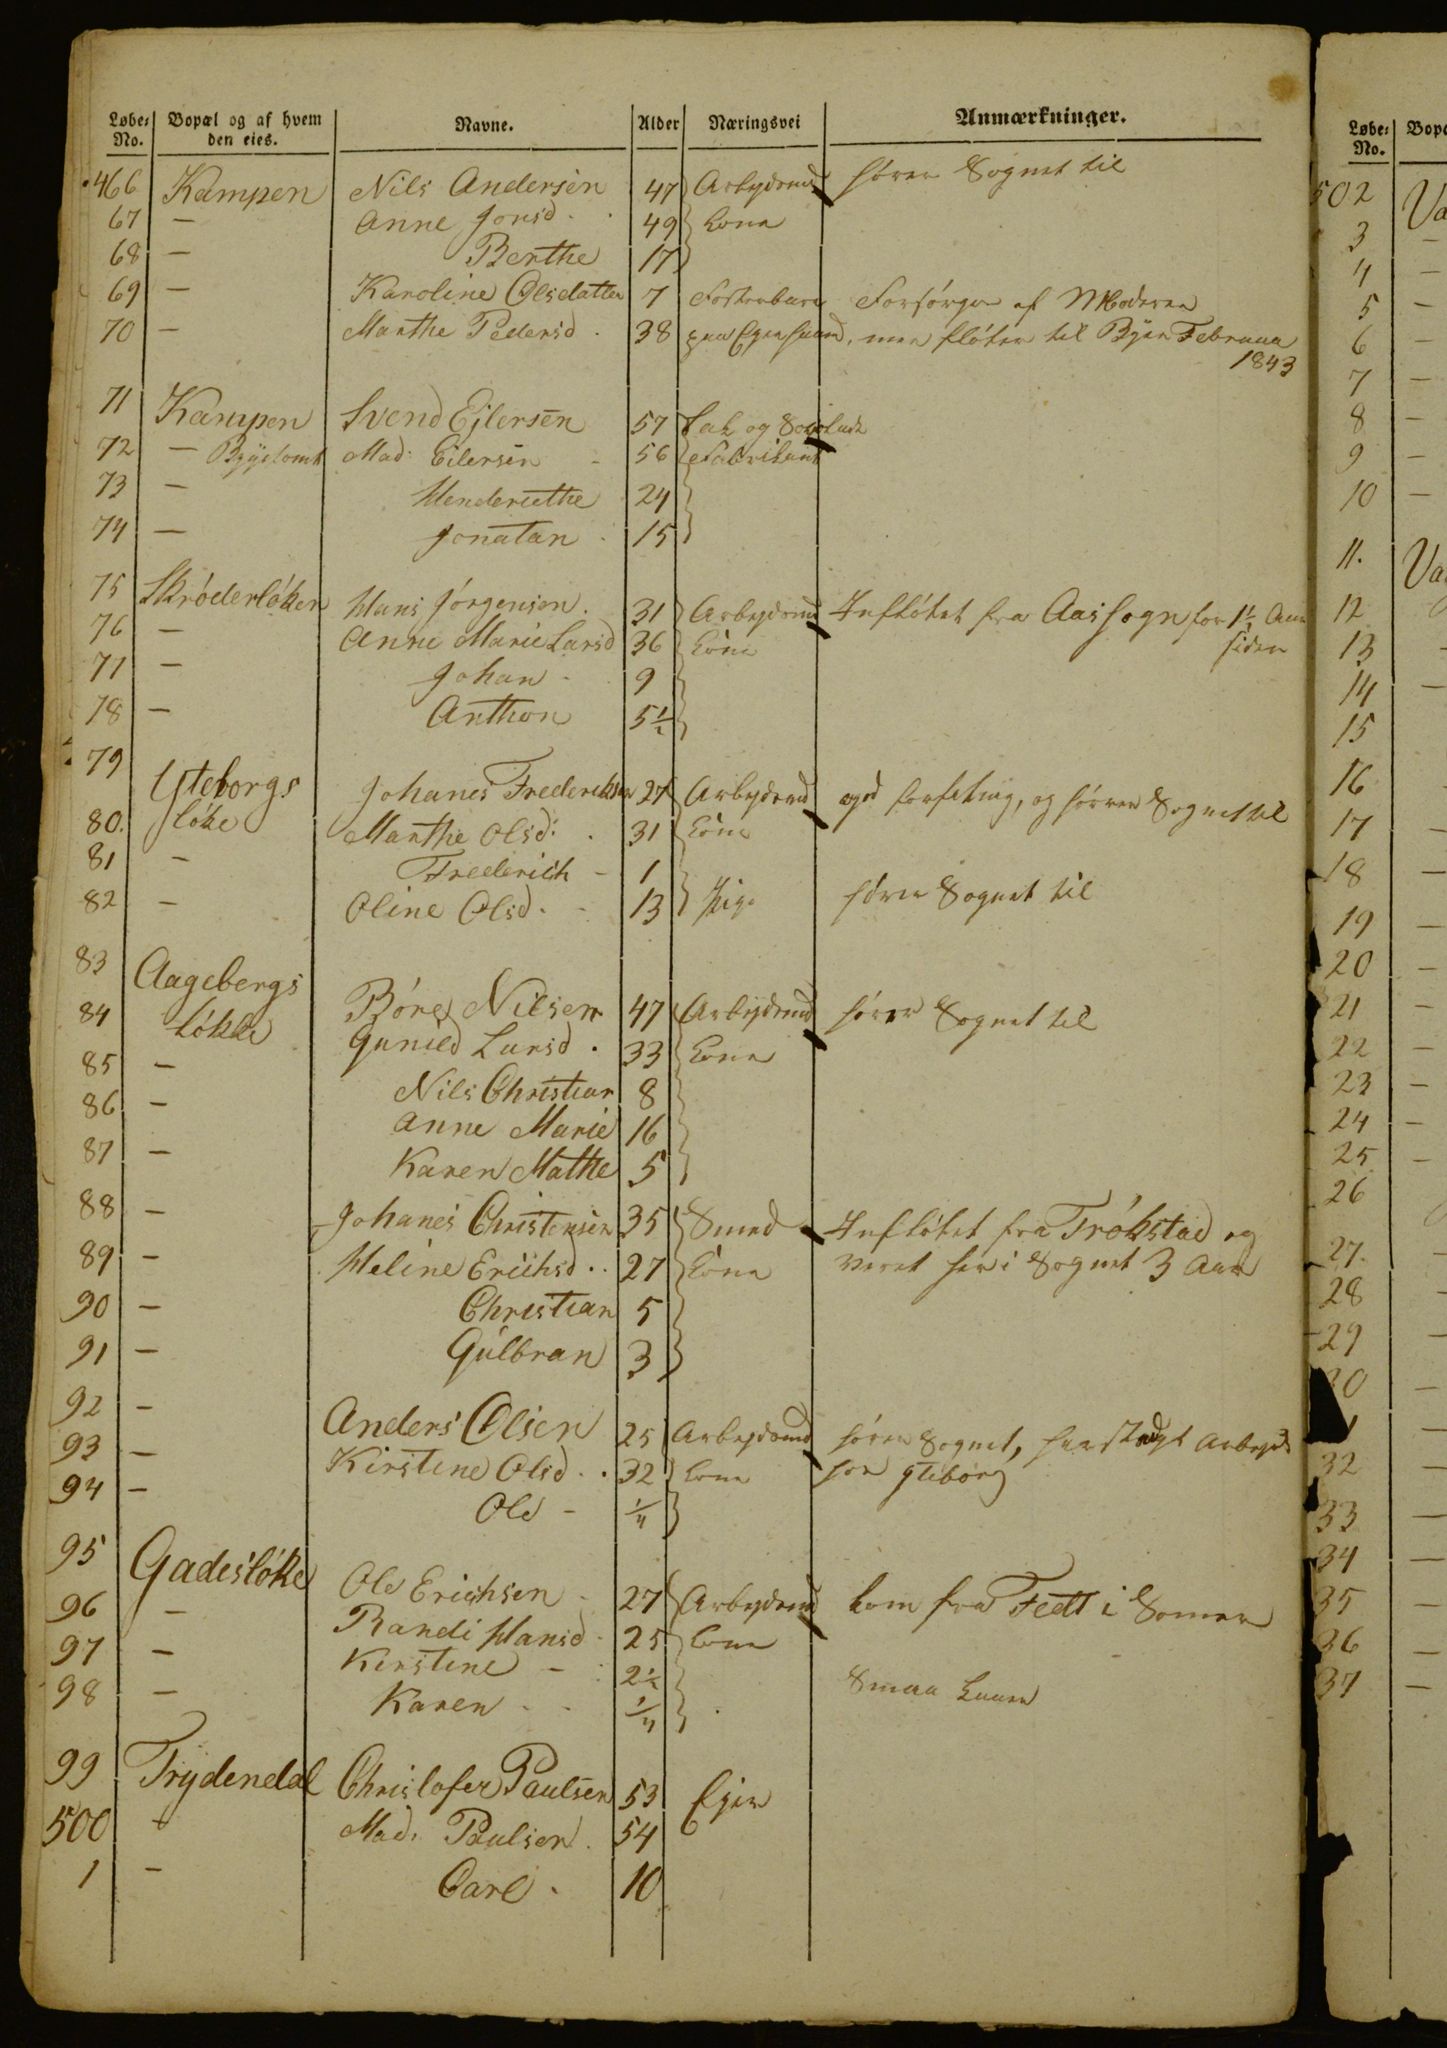 Løbe-No. Bopæl og af hvem den eies. Navne. Alder Næringsvei Anmærkninger.
466 Kampen Nils Andersen 47 Arbejdsmd hører Sognet til
67 — Anne Jonsd. 49 Kone
68 — Berthe 17
69 — Karoline Olsdatter 7 Fosterbarn Forsørges af Moderen
70 — Marthe Pedersd. 38 paa Egenhaand, men fløter til Byen Februar
1843
71 Kampen Svend Ejlersen 57 Lak og
72 — Bÿelomt Mad: Eilersen - 56 Fabrikant
73 — Henderiethe 24
74 — Jonatan 15
75 Skrøderløken Hans Jørgensen. 31 Arbejdsmd Infløtet fra Aas Sogn for 1½ Aar
siden
76 — Anne Marie Larsd 36 Kone
77 — Johan - 9
78 — Anthon 5½
79 Yteborgs Johanes Frederichsen 27 Arbejdsmd og hører Sognet til
80. løke Marthe Olsd: . 31 Kone
81 — Frederich - 1
82 — Oline Olsd. - 13 Pige hører Sognet til
83 Aagebergs Børe Nilsen 47 Arbejdsmd hører Sognet til
84 Løkke Gunild Larsd . 33 Kone
85 — Nils Christian 8
86 — Anne Marie 16
87 — Karen Mathe 5
88 — Johanes Christensen 35 Smed Infløtet fra Trøkstad og
89 — Heline Erichsd . . 27 Kone veret her i Sognet 3 Aar
90 — Christian 5
91 — Gulbran 3
92 — Anders Olsen 25 Arbejdsmd hører Sognet, Arbejde
93 — Kirstine Olsd . . 32 Kone hos Yteborg
94 — Ole - ¼
95 Gadesløke Ole Erichsen - 27 Arbejdsmd kom fra Fedt i Somer
96 — Randi Hansd - 25 Kone
97 — Kirstine - 2½ Smaa
98 — Karen - - ¼
99 Frydendal Christofer Paulsen 53 Ejer
500 — Mad: Paulsen. 54
1 — Carl . 10
Løbe-No. Bopæ
502 Va
3 —
4 —
5 —
6 —
7 —
8 —
9 —
10 —
11. Va
12
13 -
14 —
15
16
17 —
18
19 —
20 —
21 —
22 —
23 —
24 —
25 —
26
27. —
28 —
29 —
30 —
1 —
32 —
33 —
34 —
35 —
36 —
37 —